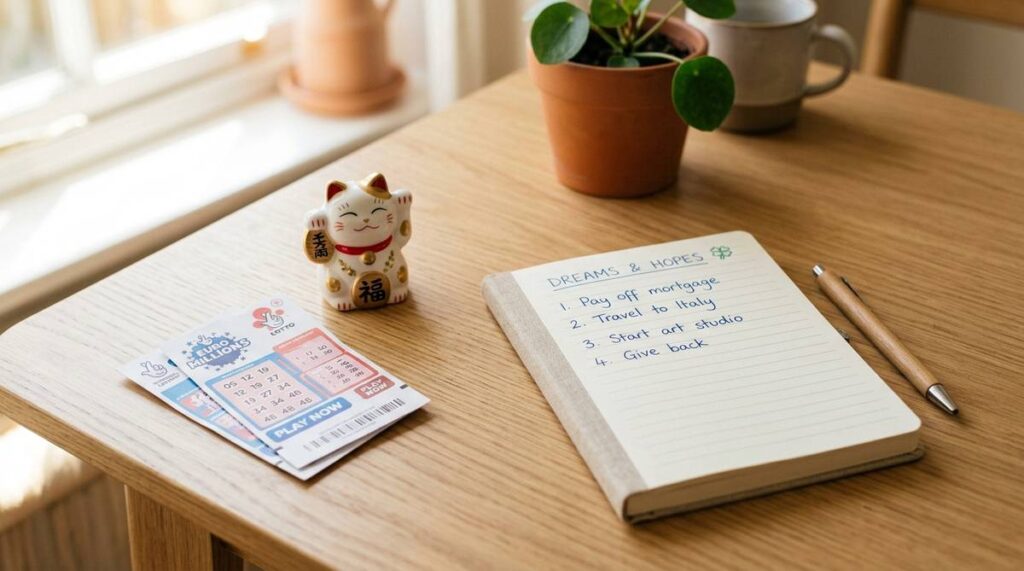 EURO
MILLIONS
LOTTO
05 12 19
12 19 27
PLAY NOW
PLAY
NOW
福
DREAMS & HOPES
1. Pay off mortgage
2. Travel to Italy
3. Start art studio
4. Give back